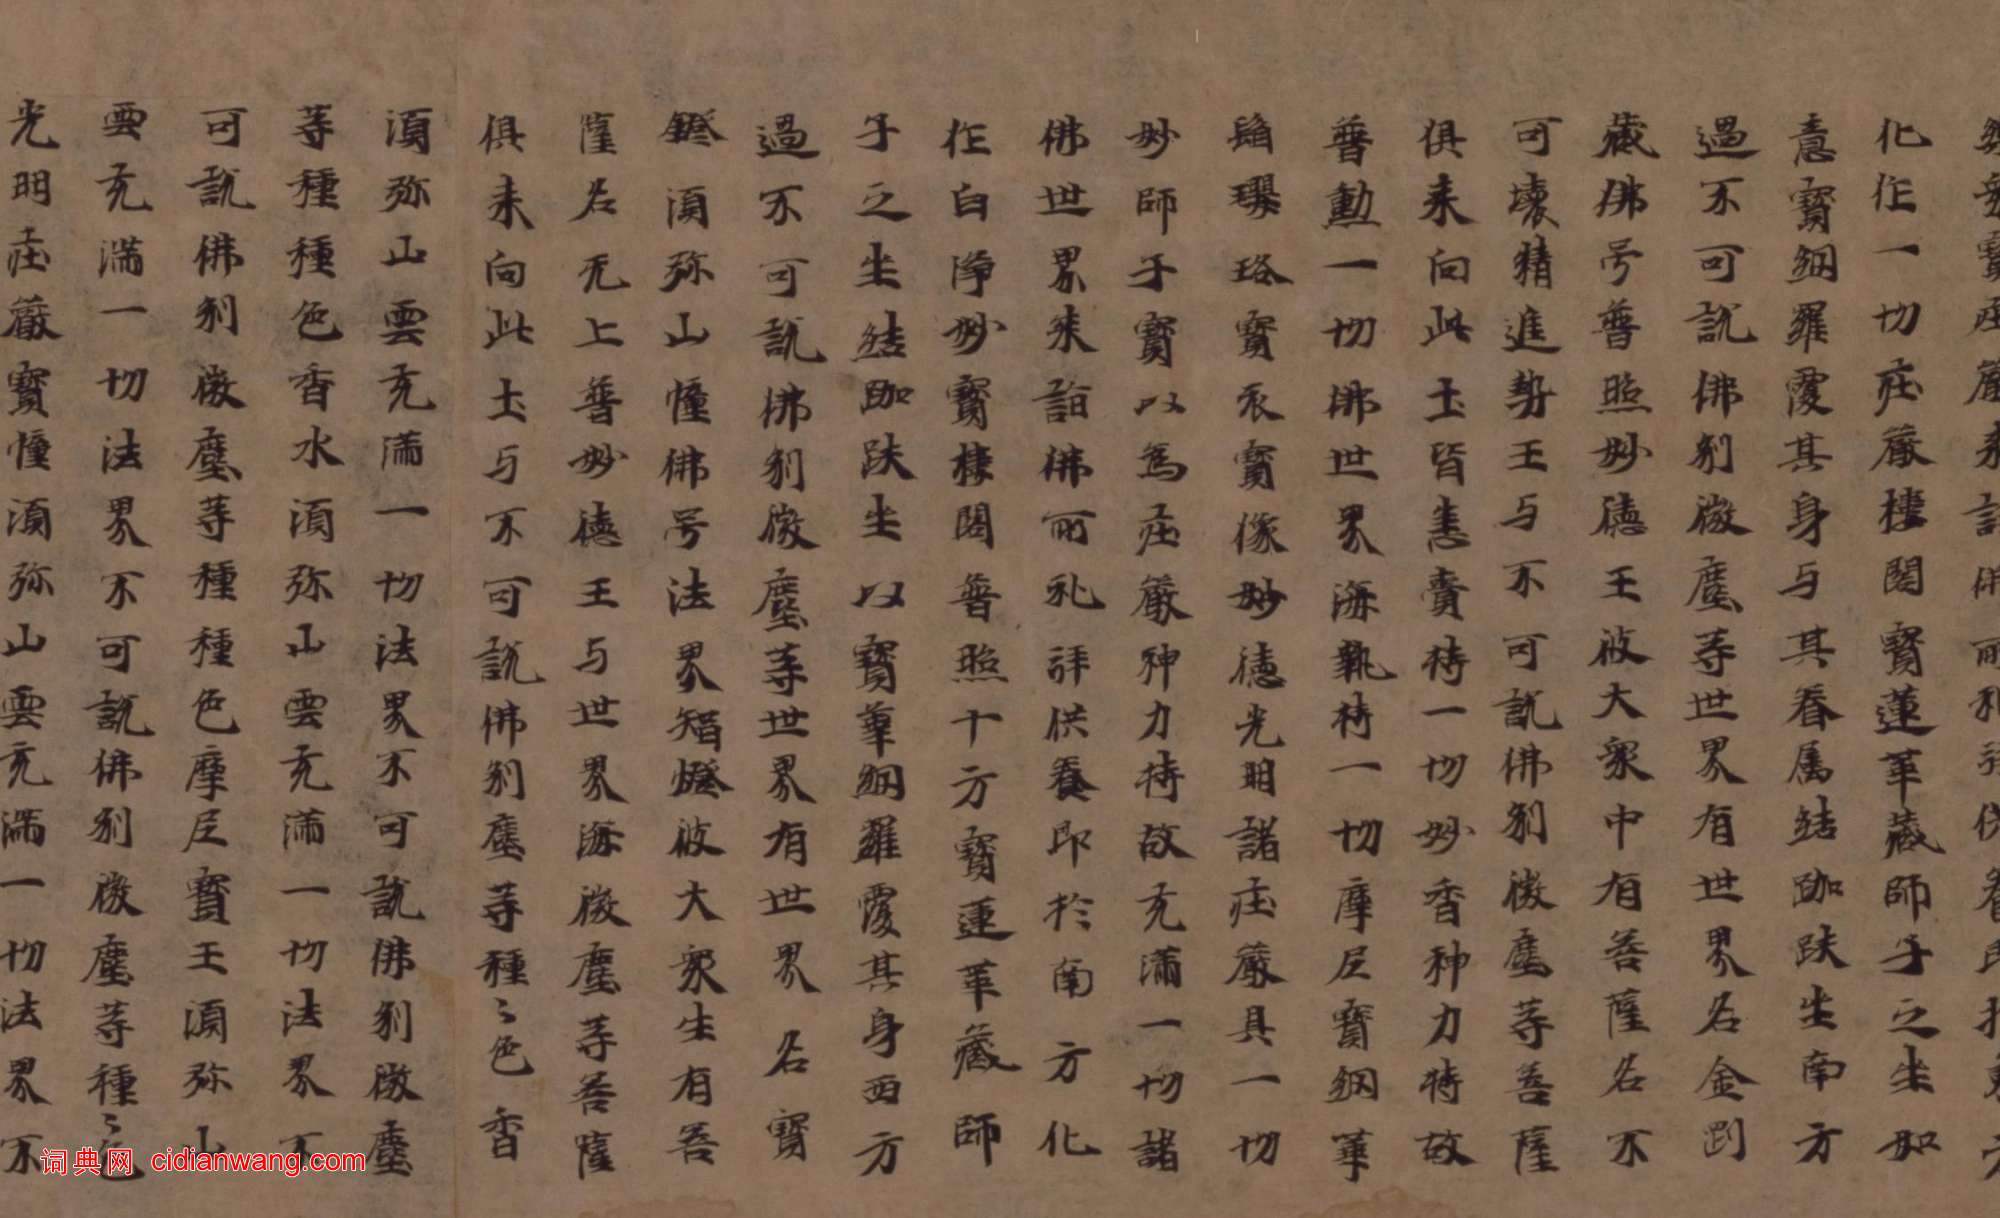 寶莊嚴来詣佛所礼拜供養即於東方
化作一切莊嚴樓閣寶蓮華藏師子之坐如
意寶網羅覆其身与其眷属結跏趺坐南方
過不可說佛刹微塵等世界有世界名金剛
藏佛号普照妙德王彼大衆中有菩薩名不
可壞精進勢王与不可說佛刹微塵等菩薩
俱来向此土皆悉賷持一切妙香神力持故
普勳一切佛世界海執持一切摩尼寶網華
鬘瓔珞寶衣寶像妙德光明諸莊嚴具一切
妙師子寶以為莊嚴神力持故充滿一切諸
佛世界来詣佛所礼拜供養即於南方化
作白淨妙寶樓閣普照十方寶蓮華藏師
子之坐結跏趺坐以寶華網羅覆其身西方
過不可說佛刹微塵等世界有世界名寶
鐙湏弥山幢佛号法界智燈彼大衆生有菩
薩名无上普妙德王与世界海微塵等菩薩
俱来向此土与不可說佛刹塵等種〻色香
湏弥山雲充滿一切法界不可說佛刹微塵
等種種色香水湏弥山雲充滿一切法界不
可說佛刹微塵等種種色摩尼寶王湏弥山
雲充滿一切法界不可說佛刹微塵等種〻色
光明莊嚴寶幢湏弥山雲充滿一切法界不
词典网 cidianwang.com